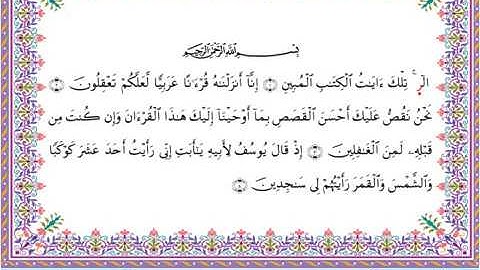 بِسْمِ اللَّهِ الرَّحْمَٰنِ الرَّحِيمِ
الٓرۚ تِلْكَ ءَايَٰتُ ٱلْكِتَٰبِ ٱلْمُبِينِ ۝ إِنَّآ أَنزَلْنَٰهُ قُرْءَٰنًا عَرَبِيًّا لَّعَلَّكُمْ تَعْقِلُونَ ۝
نَحْنُ نَقُصُّ عَلَيْكَ أَحْسَنَ ٱلْقَصَصِ بِمَآ أَوْحَيْنَآ إِلَيْكَ هَٰذَا ٱلْقُرْءَانَ وَإِن كُنتَ مِن
قَبْلِهِۦ لَمِنَ ٱلْغَٰفِلِينَ ۝ إِذْ قَالَ يُوسُفُ لِأَبِيهِ يَٰٓأَبَتِ إِنِّى رَأَيْتُ أَحَدَ عَشَرَ كَوْكَبًا
وَٱلشَّمْسَ وَٱلْقَمَرَ رَأَيْتُهُمْ لِى سَٰجِدِينَ ۝